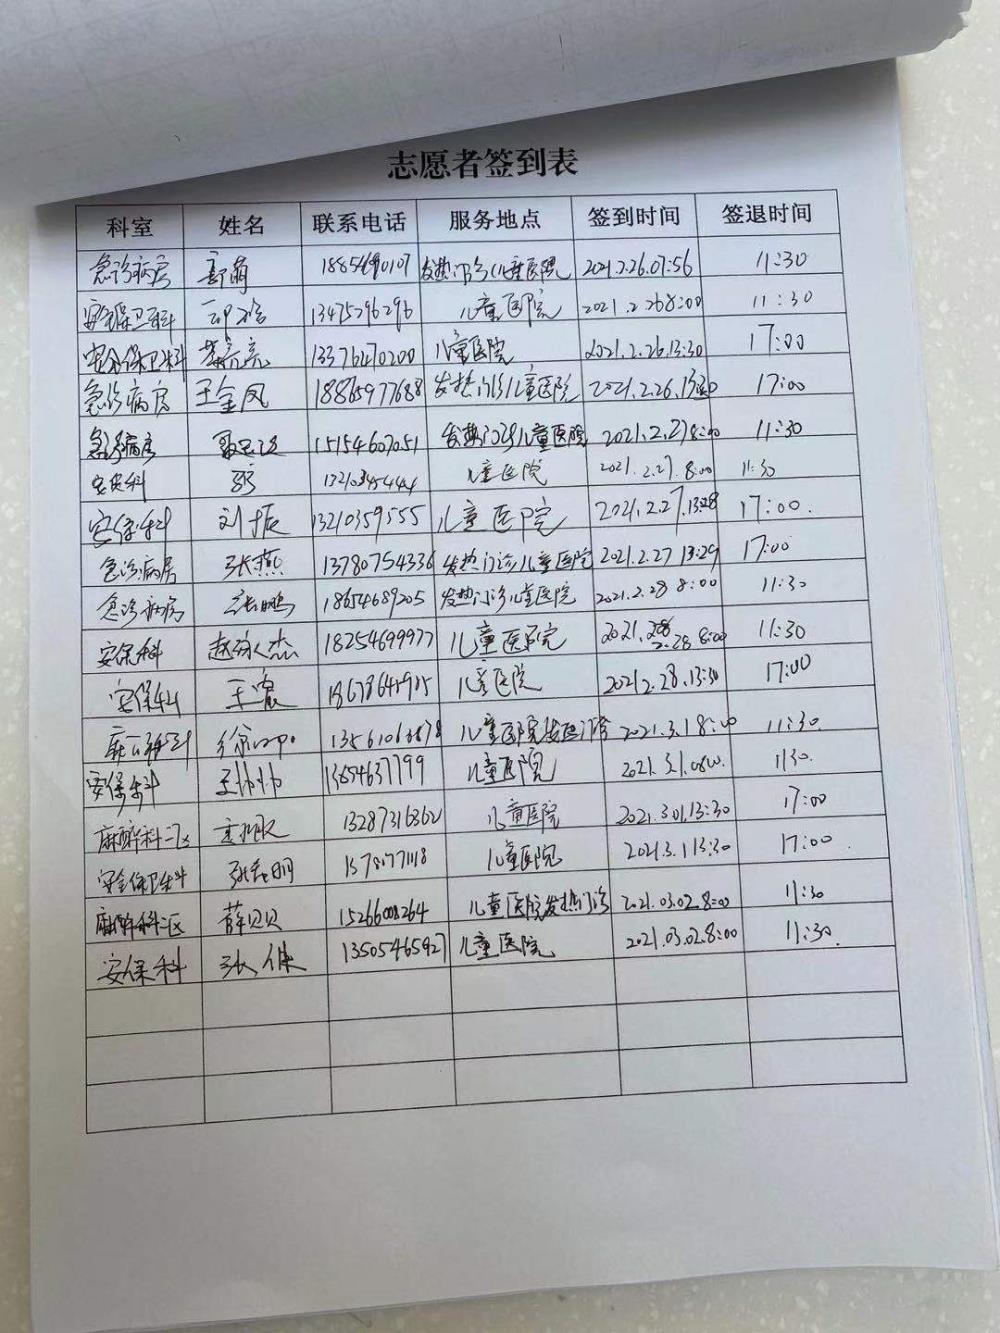 志愿者签到表
科室 姓名 联系电话 服务地点 签到时间 签退时间
急诊病房 郭萌 发热门诊儿童医院 2021.2.26.07:56 11:30
安全保卫科 13475296296 儿童医院 2021.2.26 8:00 11:30
安全保卫科 13376470200 儿童医院 2021.2.26.13:30 17:00
急诊病房 王金凤 18865977688 发热门诊儿童医院 2021.2.26.13:30 17:00
急诊病房 15154607051 发热门诊儿童医院 2021.2.27 8:00 11:30
安保科 儿童医院 2021.2.27.8:00 11:30
安保科 刘振 13210359555 儿童医院 2021.2.27.13:28 17:00.
急诊病房 张燕 13780754336 发热门诊儿童医院 2021.2.27 13:29 17:00
急诊病房 张鹏 18654689205 发热门诊儿童医院 2021.2.28 8:00 11:30
安保科 赵 杰 18254699977 儿童医院 2021.2.28 8:00 11:30
安保科 王 儿童医院 2021.2.28.13:30 17:00
徐 儿童医院 门诊 2021.3.1 8:00 11:30.
安保科 帅帅 13854637799 儿童医院 2021.3.1.0800. 1130.
麻醉科二区 13287316862 儿童医院 2021.3.01.13:30 17:00
安全保卫科 张 明 儿童医院 2021.3.1 13:30 17:00.
麻醉科二区 薛贝贝 15266008264 儿童医院发热门诊 2021.03.02.8:00 11:30
安保科 张健 13505465927 儿童医院 2021.03.02.8:00 11:30.